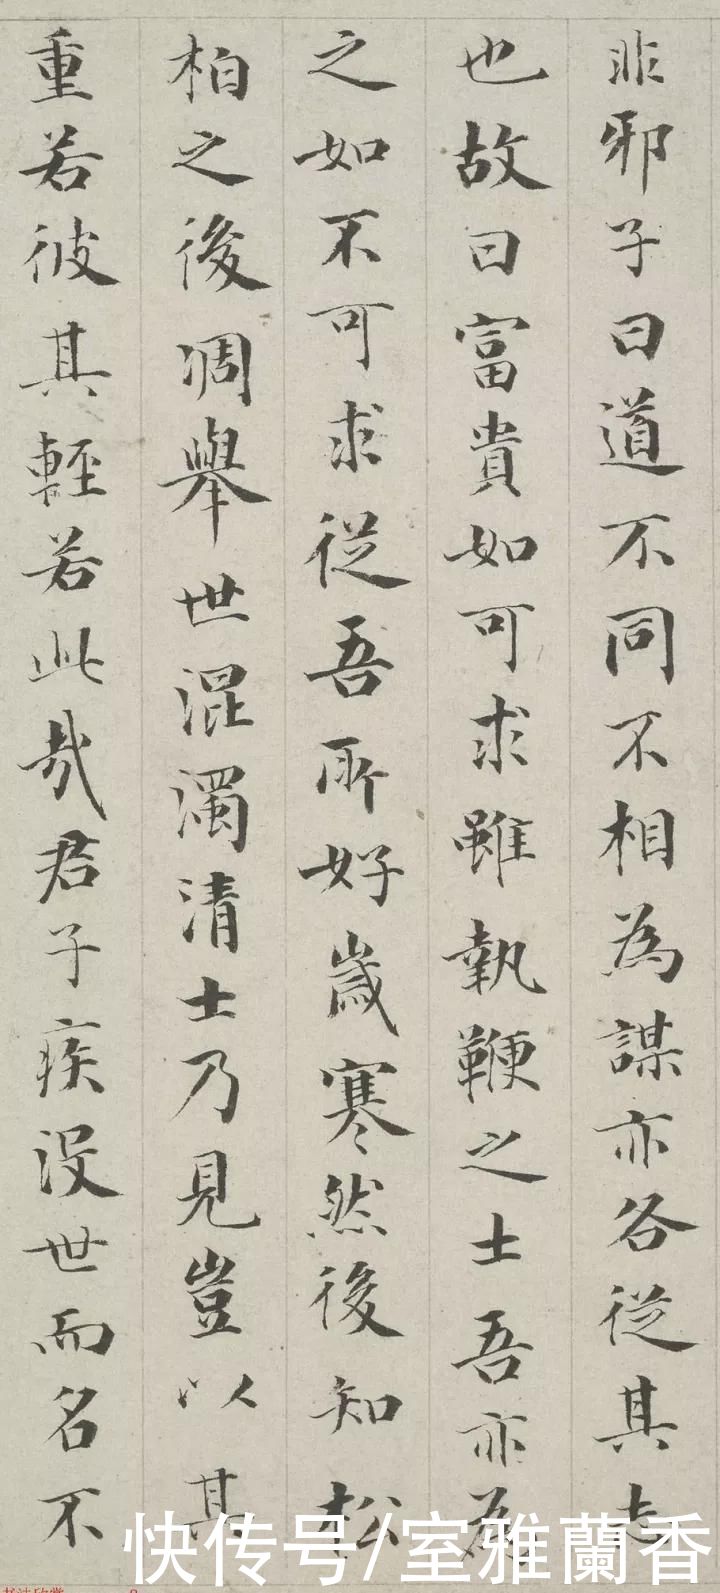 非邪子曰道不同不相為謀亦各從其志
也故曰富貴如可求雖執鞭之士吾亦為
之如不可求從吾所好歲寒然後知松
柏之後凋舉世混濁清士乃見豈以其
重若彼其輕若此哉君子疾没世而名不
快传号/室雅蘭香